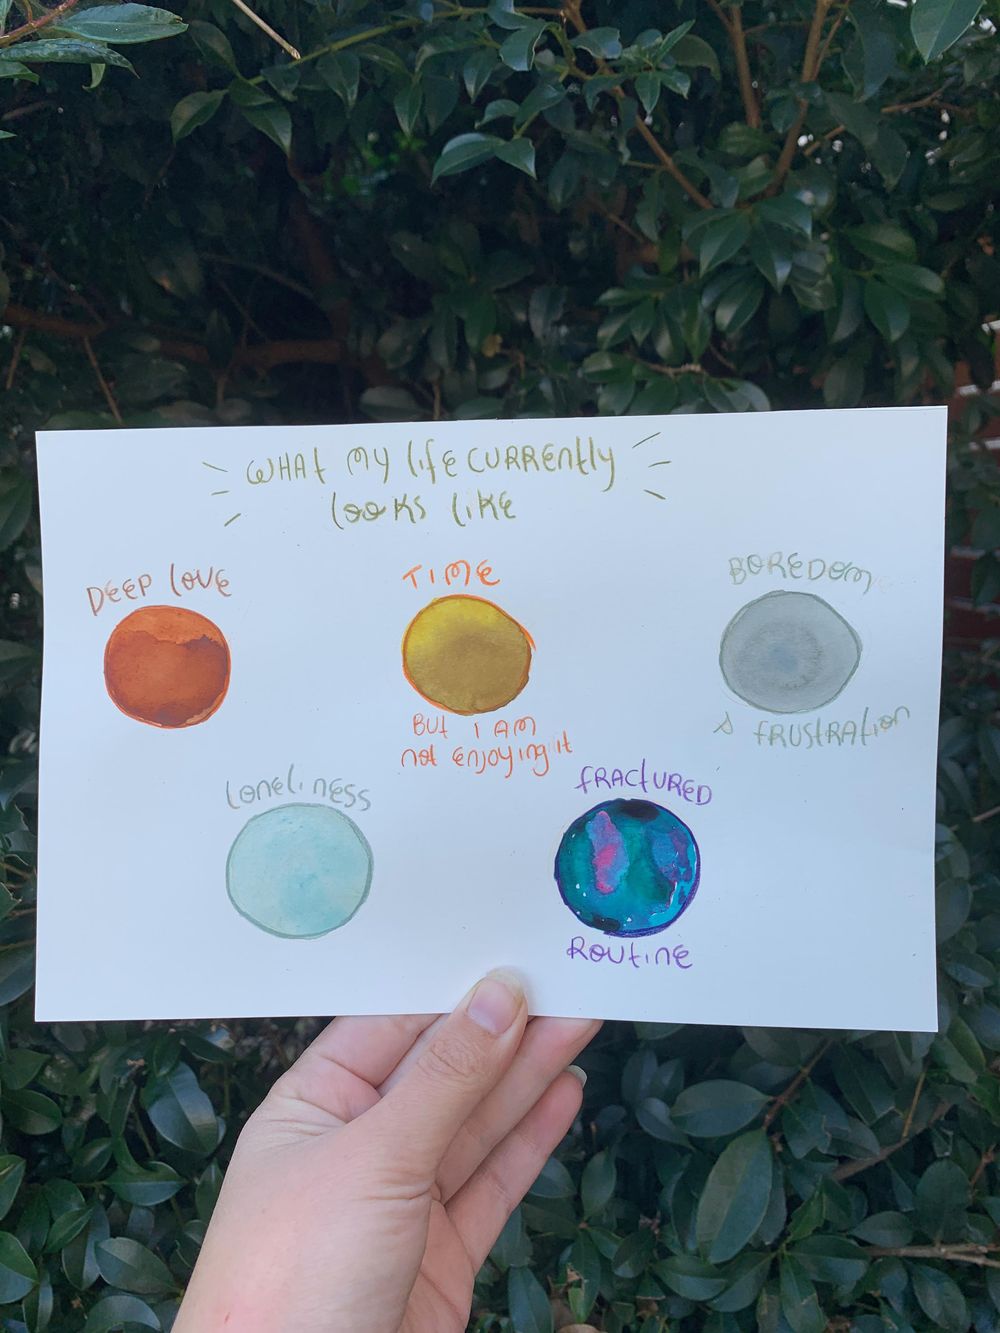 WHAT MY LIFE CURRENTLY
LOOKS LIKE
DEEP LOVE
TIME
BUT I AM
not enjoying it
BOREDOM
& FRUSTRATION
LONELINESS
FRACTURED
ROUTINE